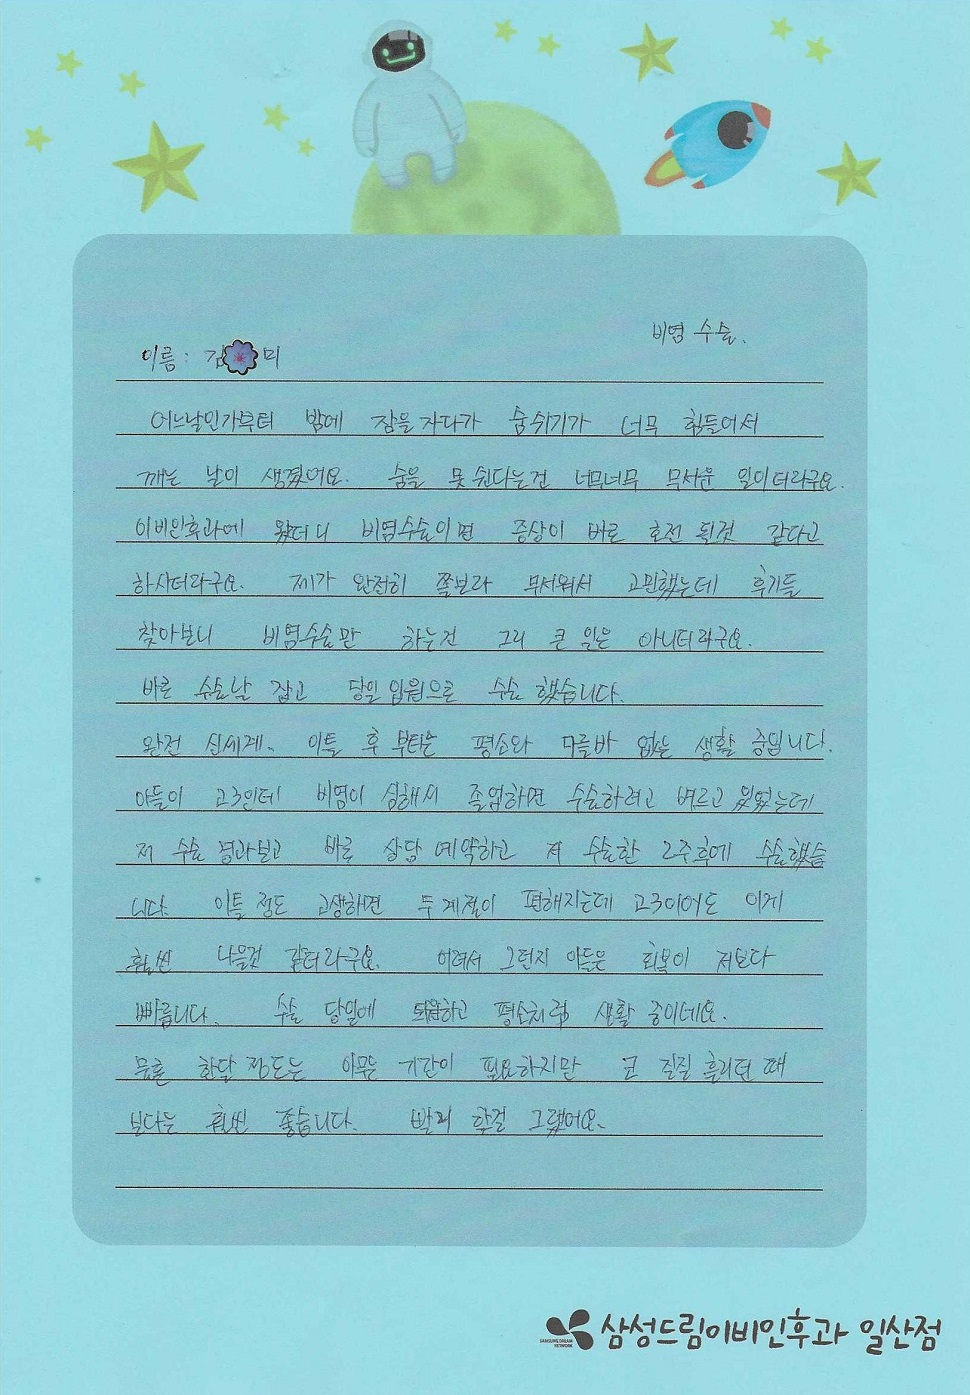 비염 수술.
이름: 김 미
어느날인가부터 밤에 잠을 자다가 숨쉬기가 너무 힘들어서
깨는 날이 생겼어요. 숨을 못 쉰다는건 너무너무 무서운 일이더라구요.
이비인후과에 왔더니 비염수술이면 증상이 바로 호전 될것 같다고
하시더라구요. 제가 완전히 쫄보라 무서워서 고민했는데 후기들
찾아보니 비염수술만 하는건 그리 큰 일은 아니더라구요.
바로 수술날 잡고 당일 입원으로 수술 했습니다.
완전 신세계. 이틀 후 부터는 평소와 다를바 없는 생활 중입니다.
아들이 고3인데 비염이 심해서 졸업하면 수술하려고 벼르고 있었는데
저 수술 경과보고 바로 상담 예약하고 저 수술한 2주후에 수술했습
니다. 이틀 정도 고생하면 두 계절이 편해지는데 고3이어도 이게
훨씬 나을것 같더라구요. 어려서 그런지 아들은 회복이 저보다
빠릅니다. 수술 당일에 퇴원하고 평소처럼 생활 중이네요.
물론 한달 정도는 아무는 기간이 필요하지만 코 질질 흘리던 때
보다는 훨씬 좋습니다. 빨리 할걸 그랬어요.
SAMSUNG DREAM
NETWORK
삼성드림이비인후과 일산점